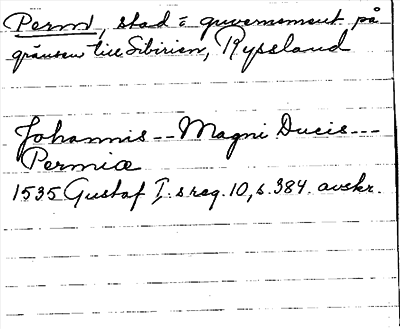 Perm, stad o guvernement på
gränsen till Sibirien, Ryssland
Johannis -- Magni Ducis ---
Permiæ
1535 Gustaf I. s reg. 10, s. 384. avskr.